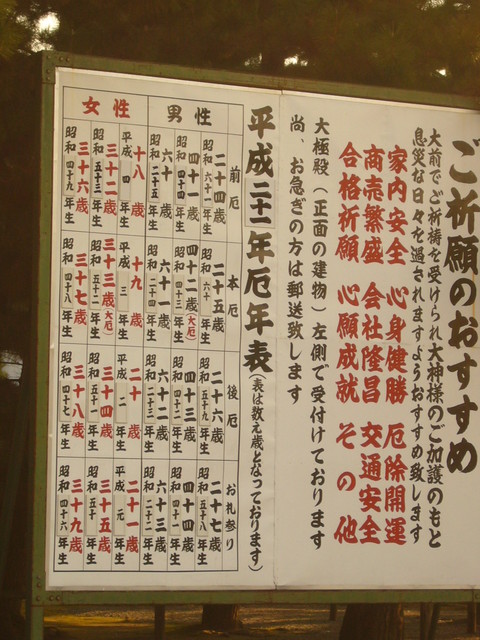 ご祈願のおすすめ
大前でご祈祷を受けられ大神様のご加護のもと
息災な日々を過されますようおすすめ致します
家内安全 心身健勝 厄除開運
商売繁盛 会社隆昌 交通安全
合格祈願 心願成就 その他
大極殿(正面の建物)左側で受付けております
尚、お急ぎの方は郵送致します
平成二十一年厄年表(表は数え歳となっております)
前厄 本厄 後厄 お礼参り
男性
二十四歳 二十五歳 二十六歳 二十七歳
昭和六十一年生 昭和六十年生 昭和五十九年生 昭和五十八年生
四十一歳 四十二歳(大厄) 四十三歳 四十四歳
昭和四十四年生 昭和四十三年生 昭和四十二年生 昭和四十一年生
六十歳 六十一歳 六十二歳 六十三歳
昭和二十五年生 昭和二十四年生 昭和二十三年生 昭和二十二年生
女性
十八歳 十九歳 二十歳 二十一歳
平成四年生 平成三年生 平成二年生 平成元年生
三十二歳 三十三歳(大厄) 三十四歳 三十五歳
昭和五十三年生 昭和五十二年生 昭和五十一年生 昭和五十年生
三十六歳 三十七歳 三十八歳 三十九歳
昭和四十九年生 昭和四十八年生 昭和四十七年生 昭和四十六年生